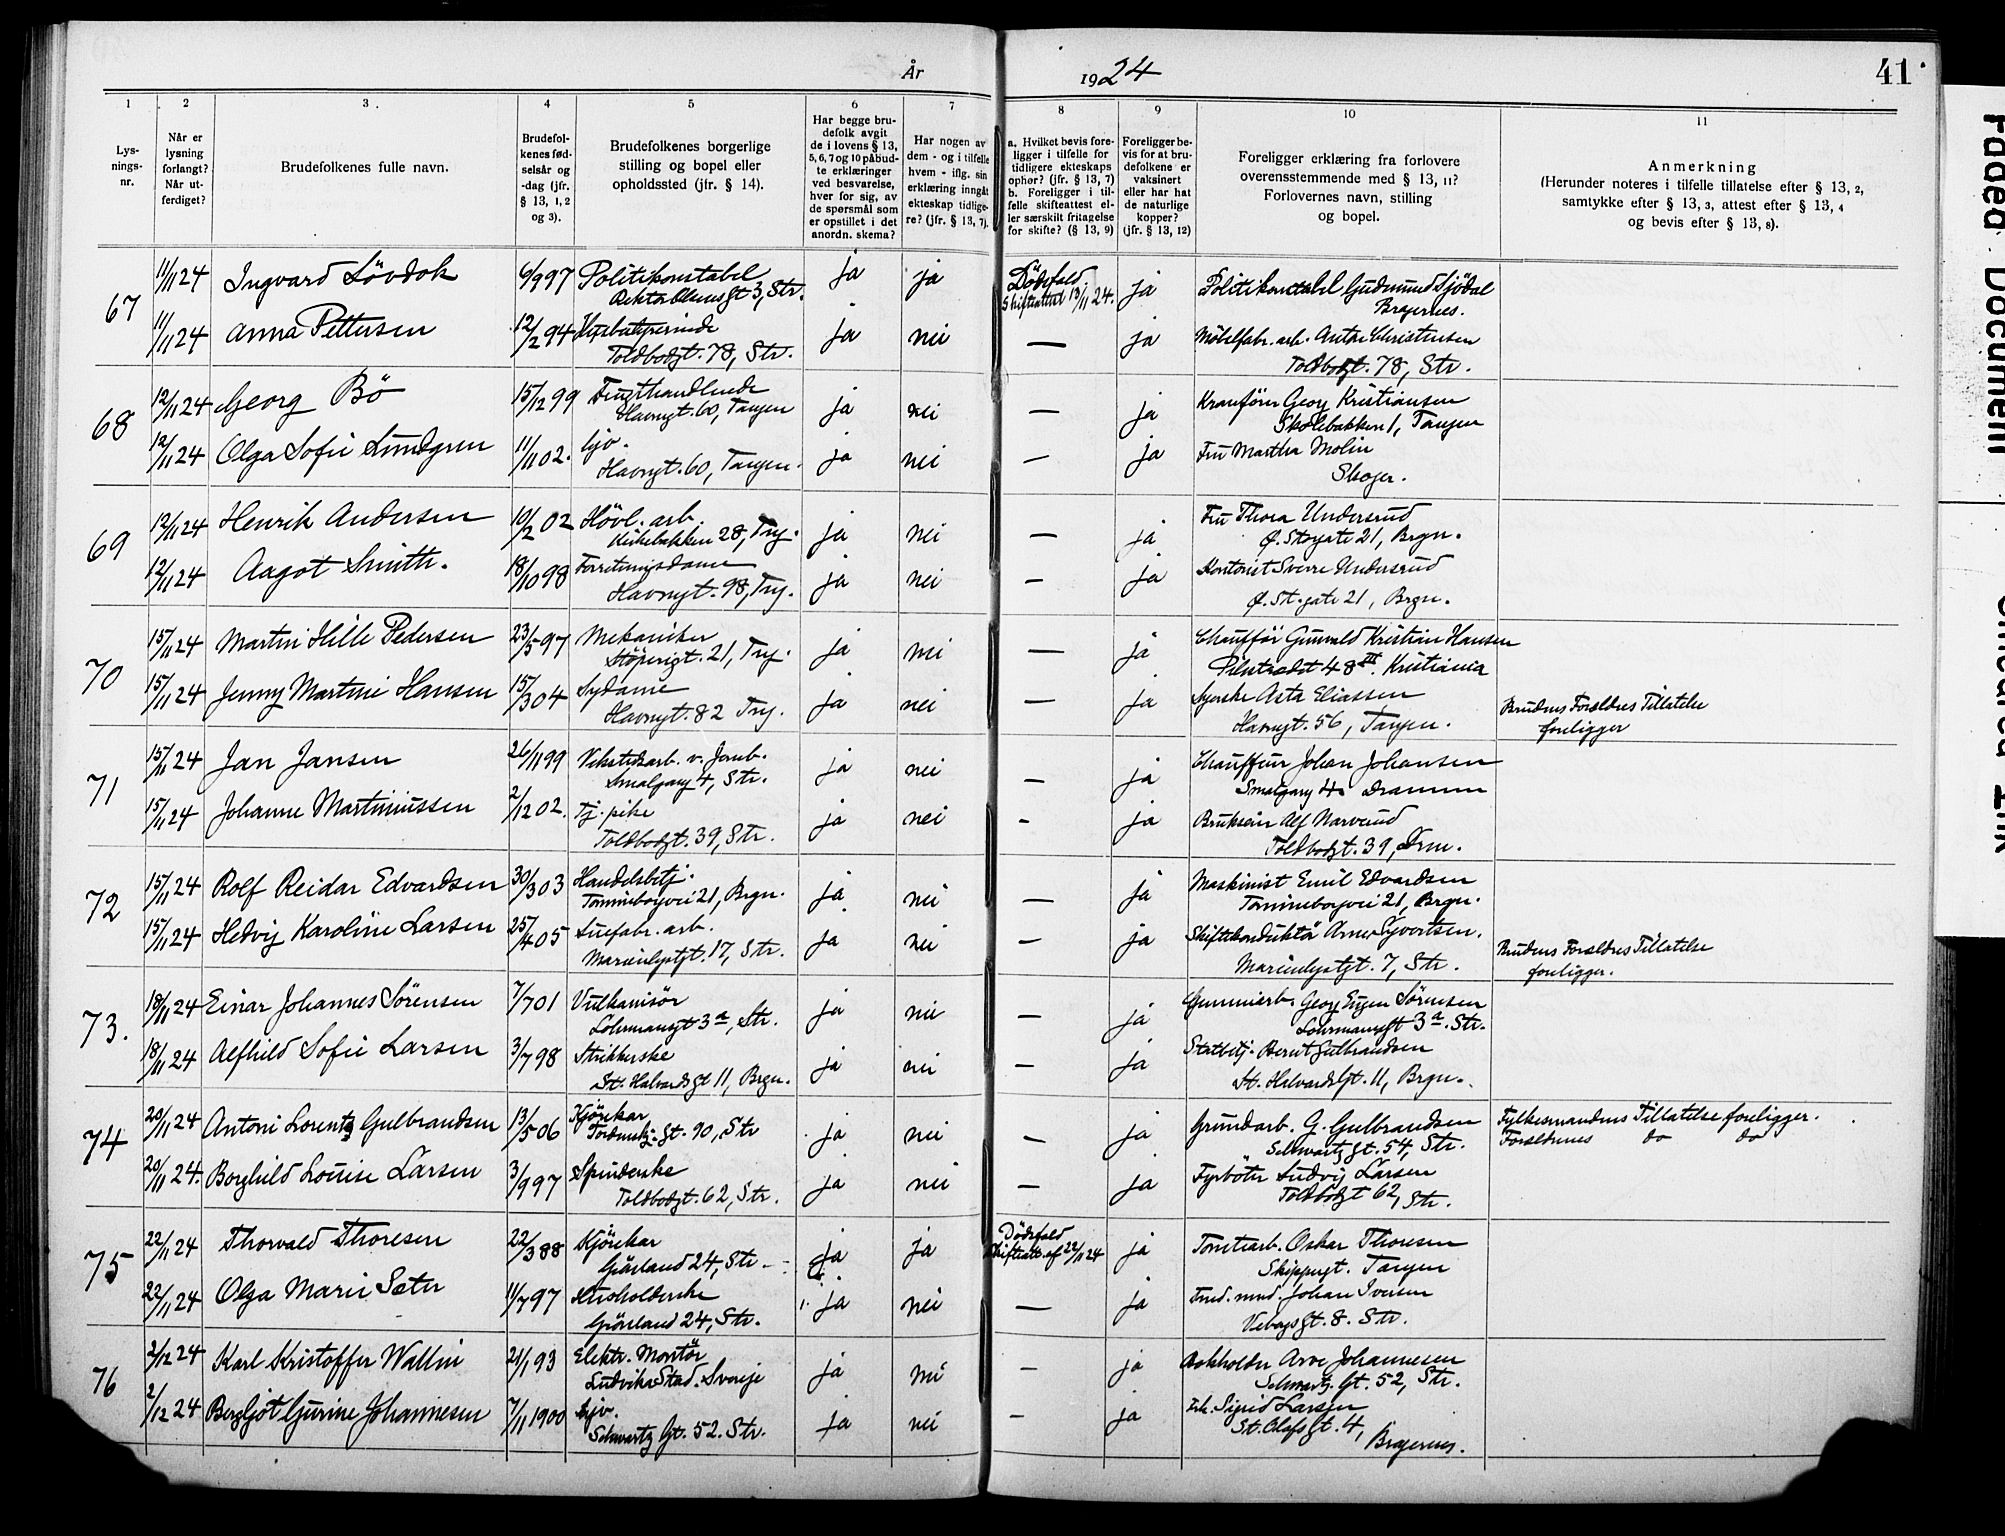 År 1924
41
1 2 3 4 5 6 7 8 9 10 11
Lys-
nings-
nr.
Når er
lysning
forlangt?
Når ut-
ferdiget?
Brudefolkenes fulle navn.
Brudefol-
kenes fød-
selsår og
-dag (jfr.
§ 13, 1, 2
og 3).
Brudefolkenes borgerlige
stilling og bopel eller
opholdssted (jfr. § 14).
Har begge bru-
defolk avgit
de i lovens § 13,
5, 6, 7 og 10 påbud-
te erklæringer
ved besvarelse,
hver for sig, av
de spørsmål som
er opstillet i det
anordn. skema?
Har nogen av
dem - og i tilfelle
hvem - iflg. sin
erklæring inngåt
ekteskap tidlige-
re? (jfr. § 13, 7).
a. Hvilket bevis fore-
ligger i tilfelle for
tidligere ekteskaps
ophør? (jfr. § 13, 7)
b. Foreligger i til-
felle skifteattest el-
ler særskilt fritagelse
for skifte? (§ 13, 9)
Foreligger be-
vis for at bru-
defolkene er
vaksinert
eller har hat
de naturlige
kopper?
(jfr. § 13, 12)
Foreligger erklæring fra forlovere
overensstemmende med § 13, 11?
Forlovernes navn, stilling
og bopel.
Anmerkning
(Herunder noteres i tilfelle tillatelse efter § 13, 2,
samtykke efter § 13, 3, attest efter § 13, 4
og bevis efter § 13, 8).
67
11/11 24 Ingvard Lövdok 6/9 97 Politikonstabel ja ja Dödsfald ja Politikonstabel Gudmund Sjödal
gt 3, Str. Skifteattest 13/11 24. Bragernes.
11/11 24 Anna Pettersen 12/2 94 Husbestyrerinde ja nei — ja Möbelfabr. arb. Anton Christensen
Toldbodgt. 78, Str. Toldbodgt. 78, Str.
68
12/11 24 Georg Bö 15/12 99 Frugthandlende ja nei — ja Kranförer Georg Kristiansen
Havnegt. 60, Tangen Skolebakken 1, Tangen
12/11 24 Olga Sofie Lundgren 11/11 02. Hjv. ja nei — ja Fru Martha Molin
Havnegt. 60, Tangen. Skoger.
69
12/11 24 Henrik Andersen 10/2 02 Hövl. arb. ja nei — ja Fru Thora Undersrud
Kirkebakken 28, Tng. Ø. Storgate 21, Brgn.
12/11 24 Aagot Smith. 18/10 98 Forretningsdame ja nei — ja Kontorist Sverre Undersrud
Havnegt. 98, Tng. Ø. St. gate 21, Brgn.
70
15/11 24 Martin Hille Pedersen 23/5 97 Mekaniker ja nei — ja Chaufför Gunvald Kristian Hansen
Støperigt. 21, Tng. Pilestrædet 48 III. Kristiania
15/11 24 Jenny Martine Hansen 15/3 04 Sydame ja nei — ja Syerske Asta Eliassen Brudens Forældres Tillatelse
Havnegt. 82 Tng. Havnegt. 56, Tangen. foreligger
71
15/11 24 Jan Jansen 26/11 99 Vekstedarb. v. Jernb. ja nei — ja Chauffeur Johan Johansen
Smalgang 4, Str. Smalgang 4. Drammen
15/11 24 Johanne Martiniussen 2/12 02. Tj. pike ja nei - ja Brukseier Alf Narverud
Toldbodgt. 39, Str. Toldbodgt. 39, Drm.
72
15/11 24 Rolf Reidar Edvardsen 30/3 03 Handelsbetj. ja nei — ja Maskinist Emil Edvardsen
Tomineborgvei 21, Brgn. Tomineborgvei 21, Brgn.
15/11 24 Hedvig Karoline Larsen 25/4 05 Luefabr. arb. ja nei — ja Skiftekonduktör Arne Syvertsen. Brudens Forældres Tillatelse
Marienlystgt. 17, Str. Marienlystgt. 7, Str. foreligger.
73.
18/11 24 Einar Johannes Sörensen 7/7 01 Vulkanisör ja nei — ja Gummiarb. Georg Eugen Sörensen
Lohrmansgt 3a, Str. Lohrmansgt 3a. Str.
18/11 24 Alfhild Sofie Larsen 3/7 98 Strikkerske ja nei — ja Statbetj. Bernt Gulbrandsen
St. Halvardsgt 11, Brgn. St. Halvardsgt. 11, Brgn.
74
20/11 24 Antoni Lorentz Gulbrandsen 13/5 06 Kjörekar ja nei — ja Grundarb. G. Gulbrandsen Fylkesmandens Tillatelse foreligger.
gt. 90, Str Schwartz gt. 54, Str. Forældrenes do do
20/11 24. Borghild Louise Larsen 3/9 97 Spinderske ja nei — ja Fyrböter Ludvig Larsen
Toldbodgt. 62, Str. Toldbodgt 62, Str.
75
22/11 24 Thorvald Thoresen 22/3 88 Kjörekar ja ja Dödsfald ja Tomtearb. Oskar Thoresen
Grönland 24, Str. Skifteatt. af 22/11 24 Skippergt. Tangen
22/11 24 Olga Marie Sæter 11/7 97 Husholderske ja nei — ja Johan Iversen
Grönland 24, Str. gt. 8. Str.
76
2/12 24 Karl Kristoffer Wallin 21/1 93 Elektr. Montör ja nei — ja Bokholder Arve Johannesen
Ludvika Stad. Sverige Schwartz Gt. 52, Str.
2/12 24 Bergljot Gurine Johannesen 7/11 1900 Hjv. ja nei - ja Frk. Sigrid Larsen
Schwartz Gt. 52. Str. St. Olafs gt. 4, Bragernes.
Faded Document